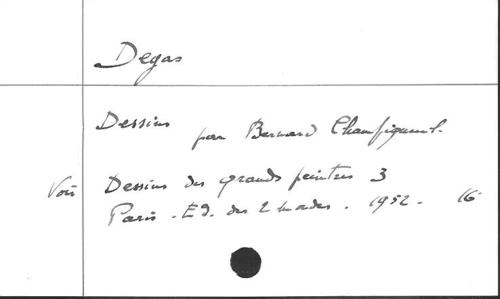 Degas
Dessins par Bernard Champigneul.
Voir Dessins des grands peintres 3
Paris - Ed. des 2 mondes. 1952 - 16